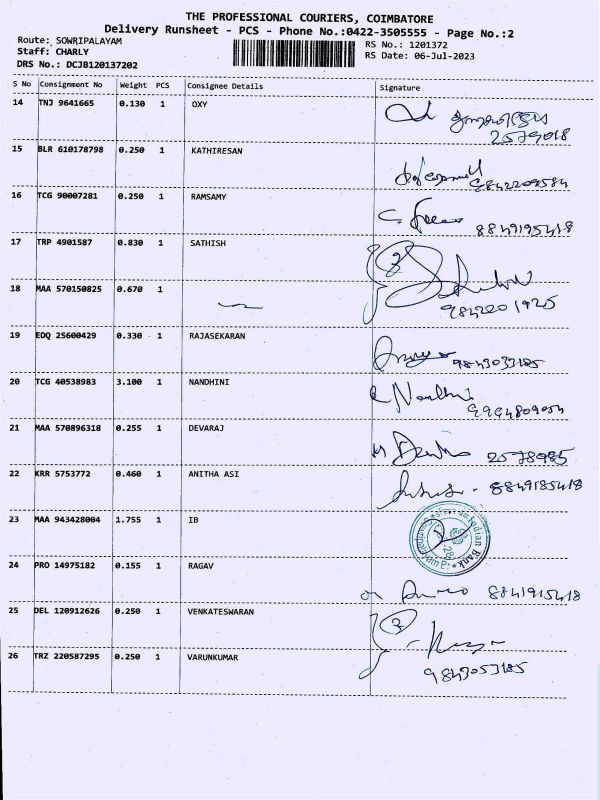 THE PROFESSIONAL COURIERS, COIMBATORE
Delivery Runsheet - PCS - Phone No.:0422-3505555 - Page No.:2
Route: SOWRIPALAYAM RS No.: 1201372
Staff: CHARLY RS Date: 06-Jul-2023
DRS No.: DCJB120137202
S No Consignment No Weight PCS Consignee Details Signature
14 TNJ 9641665 0.130 1 OXY
2579018
15 BLR 610178798 0.250 1 KATHIRESAN
9842209584
16 TCG 90007281 0.250 1 RAMSAMY
8849195418
17 TRP 4901587 0.830 1 SATHISH
2
18 MAA 570150825 0.670 1
9842201925
19 EDQ 25600429 0.330 1 RAJASEKARAN
9843033185
20 TCG 40538983 3.100 1 NANDHINI
9994809054
21 MAA 570896318 0.255 1 DEVARAJ
2578985
22 KRR 5753772 0.460 1 ANITHA ASI
8849185418
23 MAA 943428004 1.755 1 IB
Indian Bank
24 PRO 14975182 0.155 1 RAGAV
8841915418
25 DEL 120912626 0.250 1 VENKATESWARAN
2
26 TRZ 220587295 0.250 1 VARUNKUMAR
9843053185